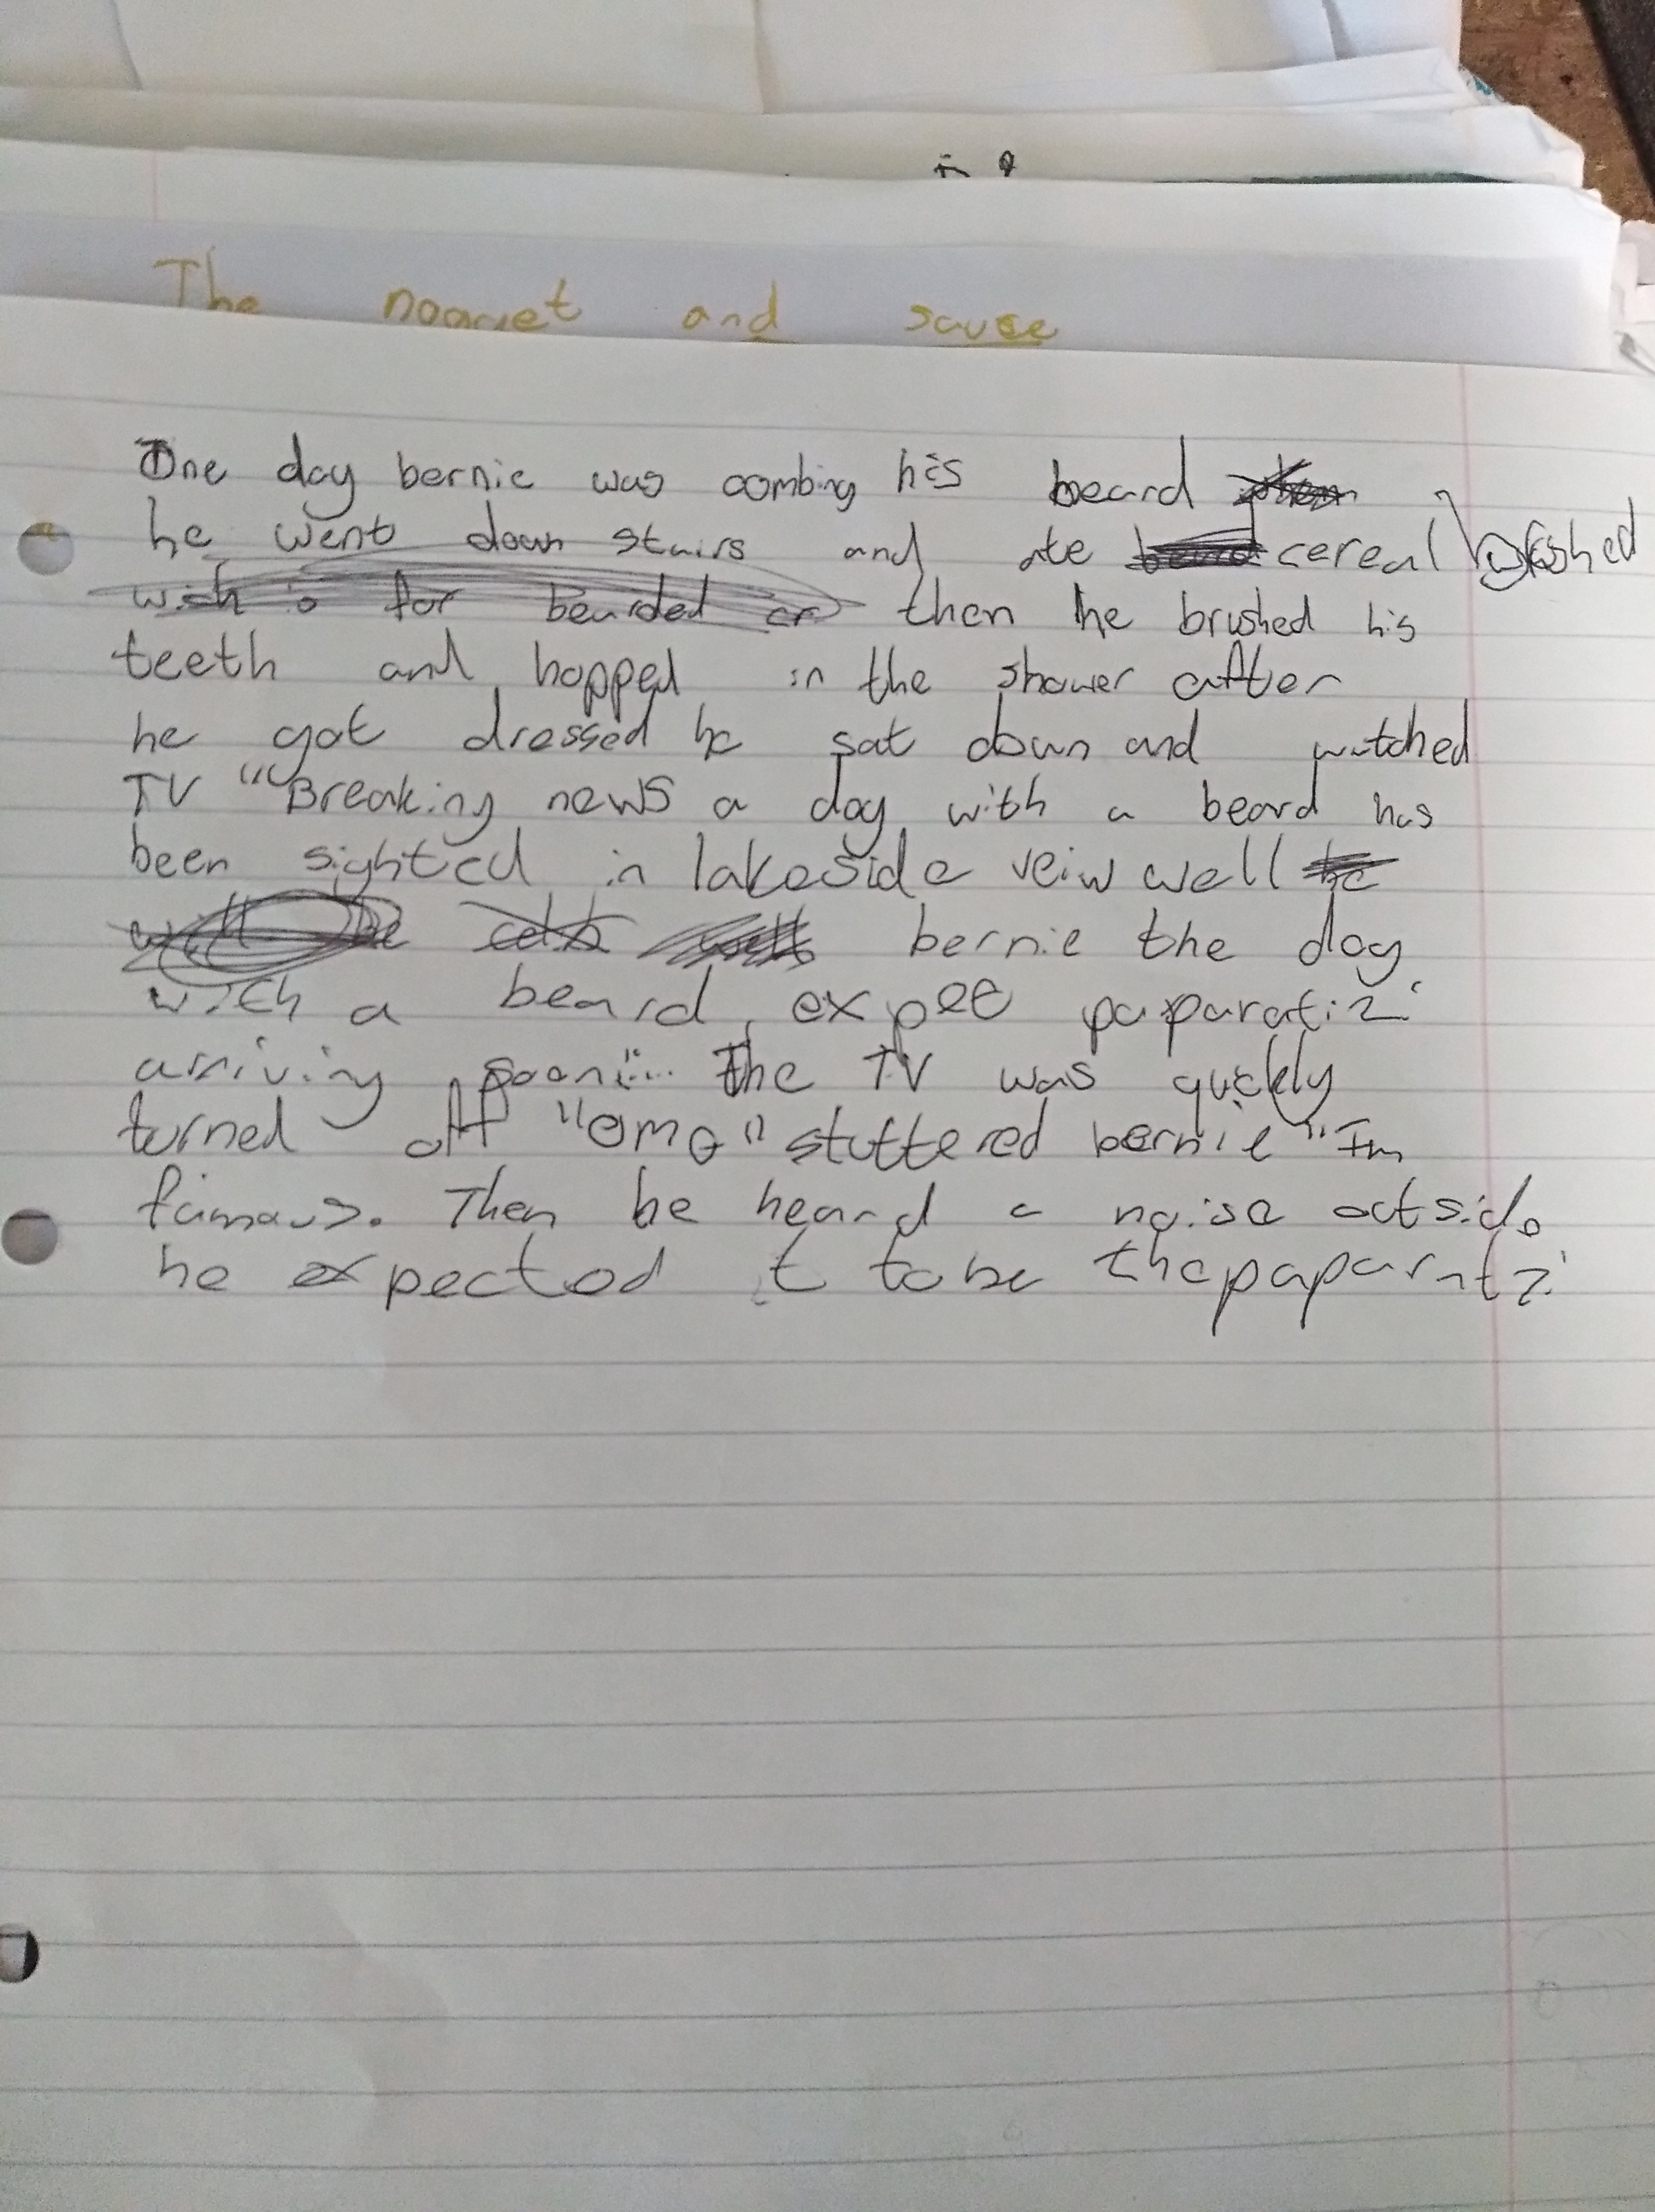 The nogguet and sause
One day bernie was combing his beard
he went down stairs and ate cereal
wish for bearded cr then he brushed his
teeth and hopped in the shower after
he got dressed he sat down and watched
TV "Breaking news a dog with a beard has
been sighted in lakeside veiw well he
bernie the dog
with a beard expet paparatizi
arriving soon"... The TV was quickly
turned off "OMG" stuttered bernie "Im
famous. Then he heard a noise outside
he expected it to be the paparatzi